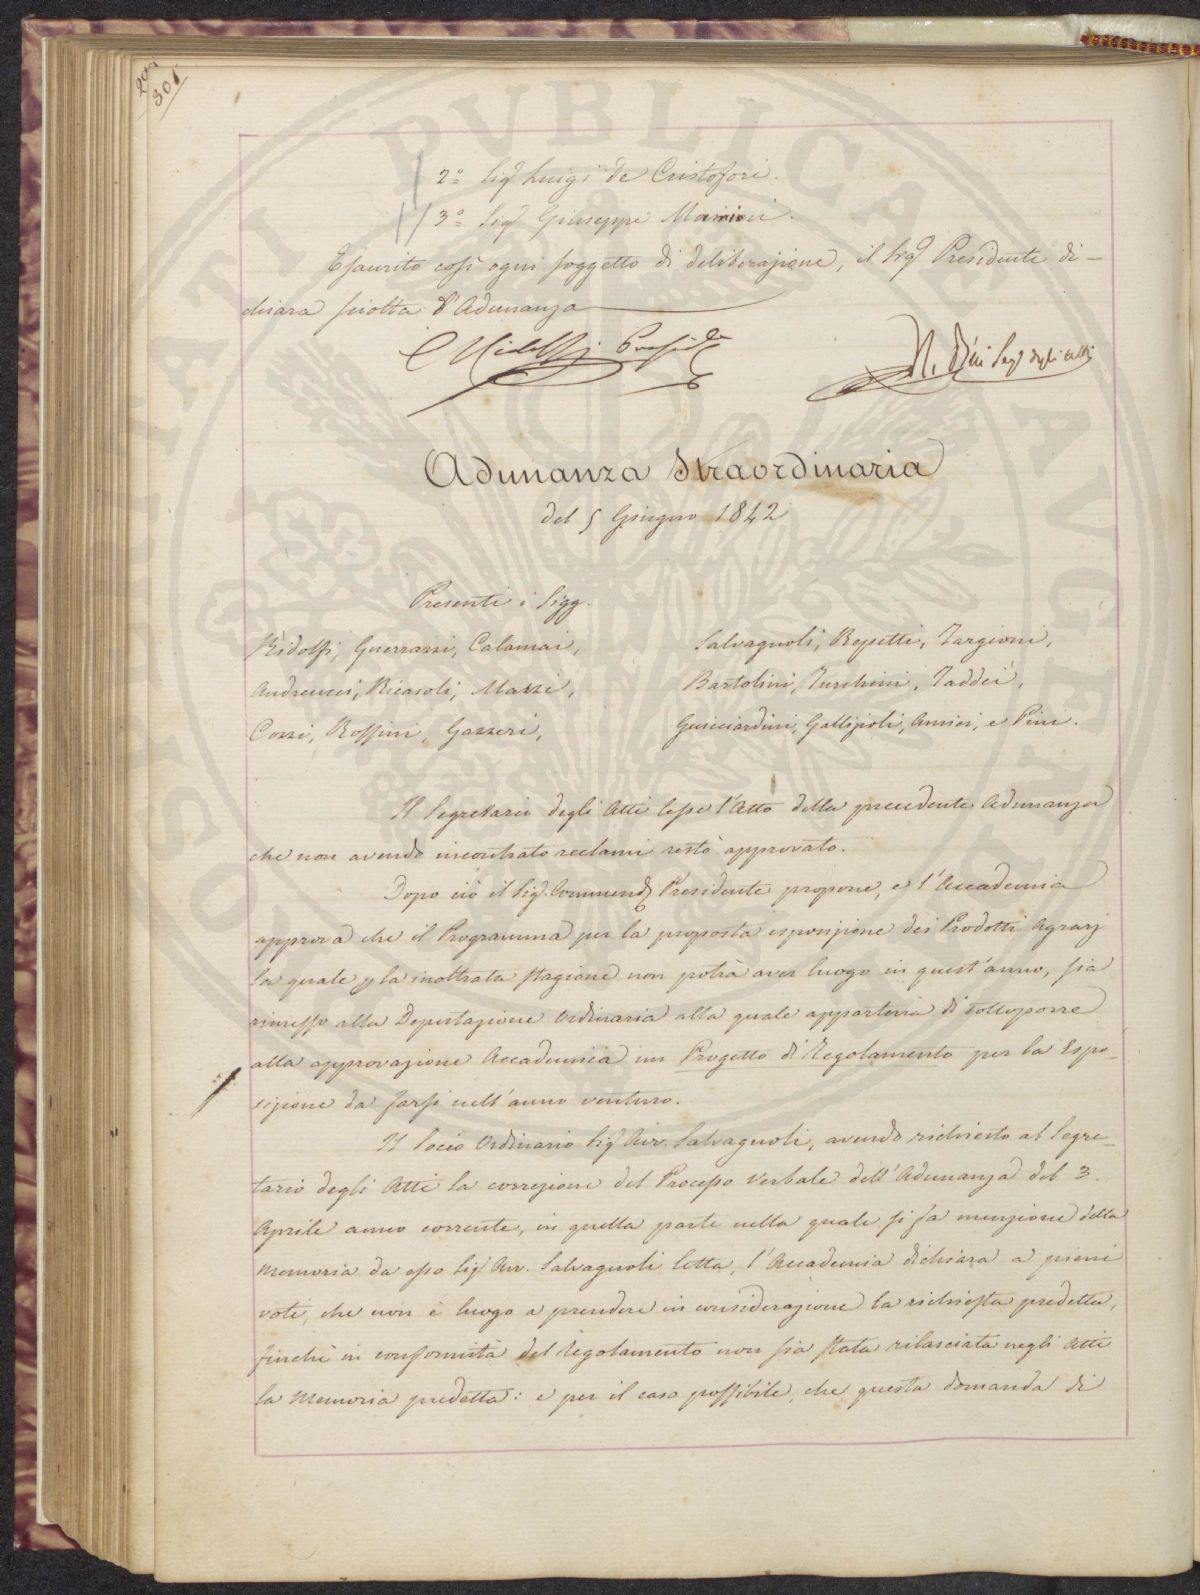 301
2º Sigʳ Luigi de Cristofori.
3º Sigʳ Giuseppe
Esaurito così ogni soggetto di deliberazione, il Sigʳ Presidente di-
chiara sciolta l'Adunanza
C Ridolfi Presidᵗᵉ
Pini Segʳ degli Atti
Adunanza Straordinaria
del 5 Giugno 1842
Presenti i Sigg.
Ridolfi, Guerrazzi, Calamai,
Salvagnoli, Repetti, Targioni,
Andreucci, Ricasoli, Mazzi,
Bartolini, Turchini, Taddei,
Cozzi, Roffini, Gazzeri,
Guicciardini, Gallizioli, Amici, e Pini.
Il Segretario degli Atti lesse l'Atto della precedente Adunanza
che non avendo incontrato reclami restò approvato.
Dopo ciò il Sigʳ. Commendʳ Presidente propone, e l'Accademia
approva che il Programma per la proposta esposizione dei Prodotti Agrarj
la quale p la inoltrata stagione non potrà aver luogo in quest'anno, sia
rimesso alla Deputazione Ordinaria alla quale apparterrà di sottoporre
alla approvazione Accademica un Progetto di Regolamento per la Espo-
sizione da farsi nell'anno venturo.
Il Socio Ordinario Sigʳ Avv. Salvagnoli, avendo richiesto al Segre-
tario degli Atti la correzione del Processo Verbale dell'Adunanza del 3.
Aprile anno corrente, in quella parte nella quale si fa menzione della
Memoria da esso Sigʳ Avv. Salvagnoli letta, l'Accademia dichiara a pieni
voti, che non è luogo a prendere in considerazione la richiesta predetta,
finchè in conformità del Regolamento non sia stata rilasciata negli Atti
la Memoria predetta: e per il caso possibile, che questa domanda di
PUBLICAE
AUGENDAE